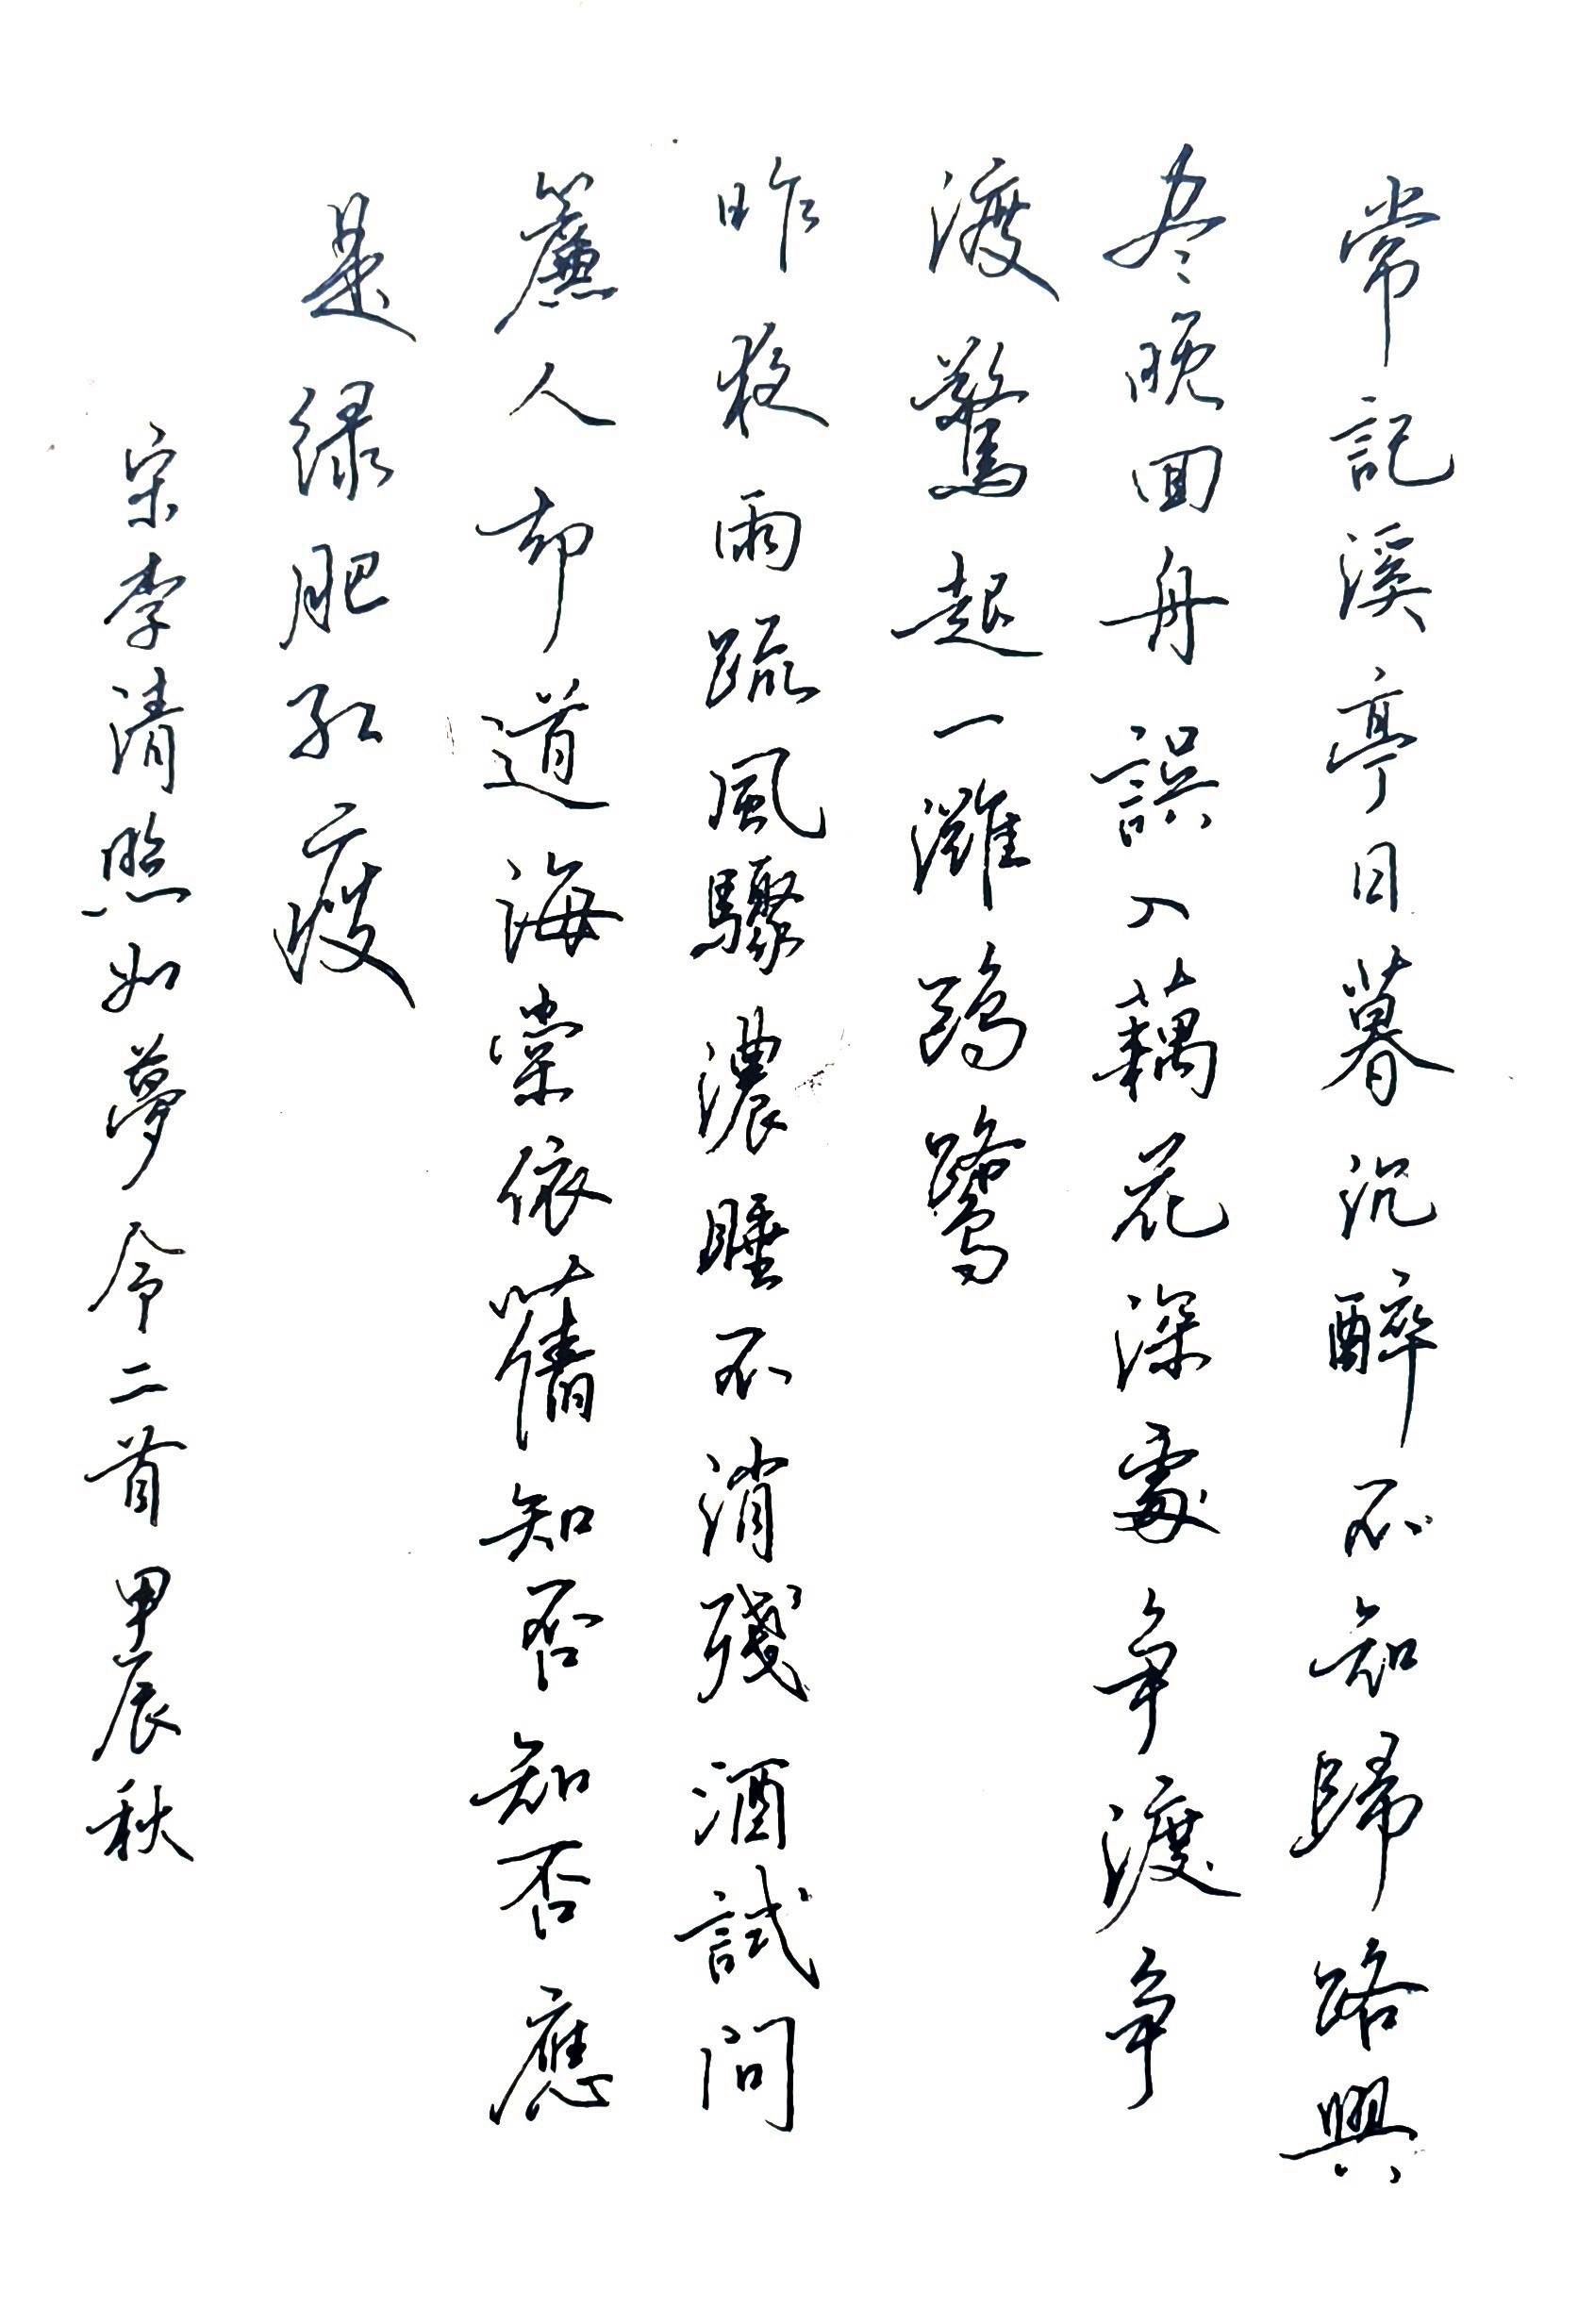 常記溪亭日暮沉醉不知歸路興
尽晚回舟誤入藕花深處争渡争
渡驚起一灘鷗鹭
昨夜雨疏風驟濃睡不消殘酒試問
簾人却道海棠依舊知否知否應
是绿肥红瘦
宋李清照如夢令二首甲辰秋